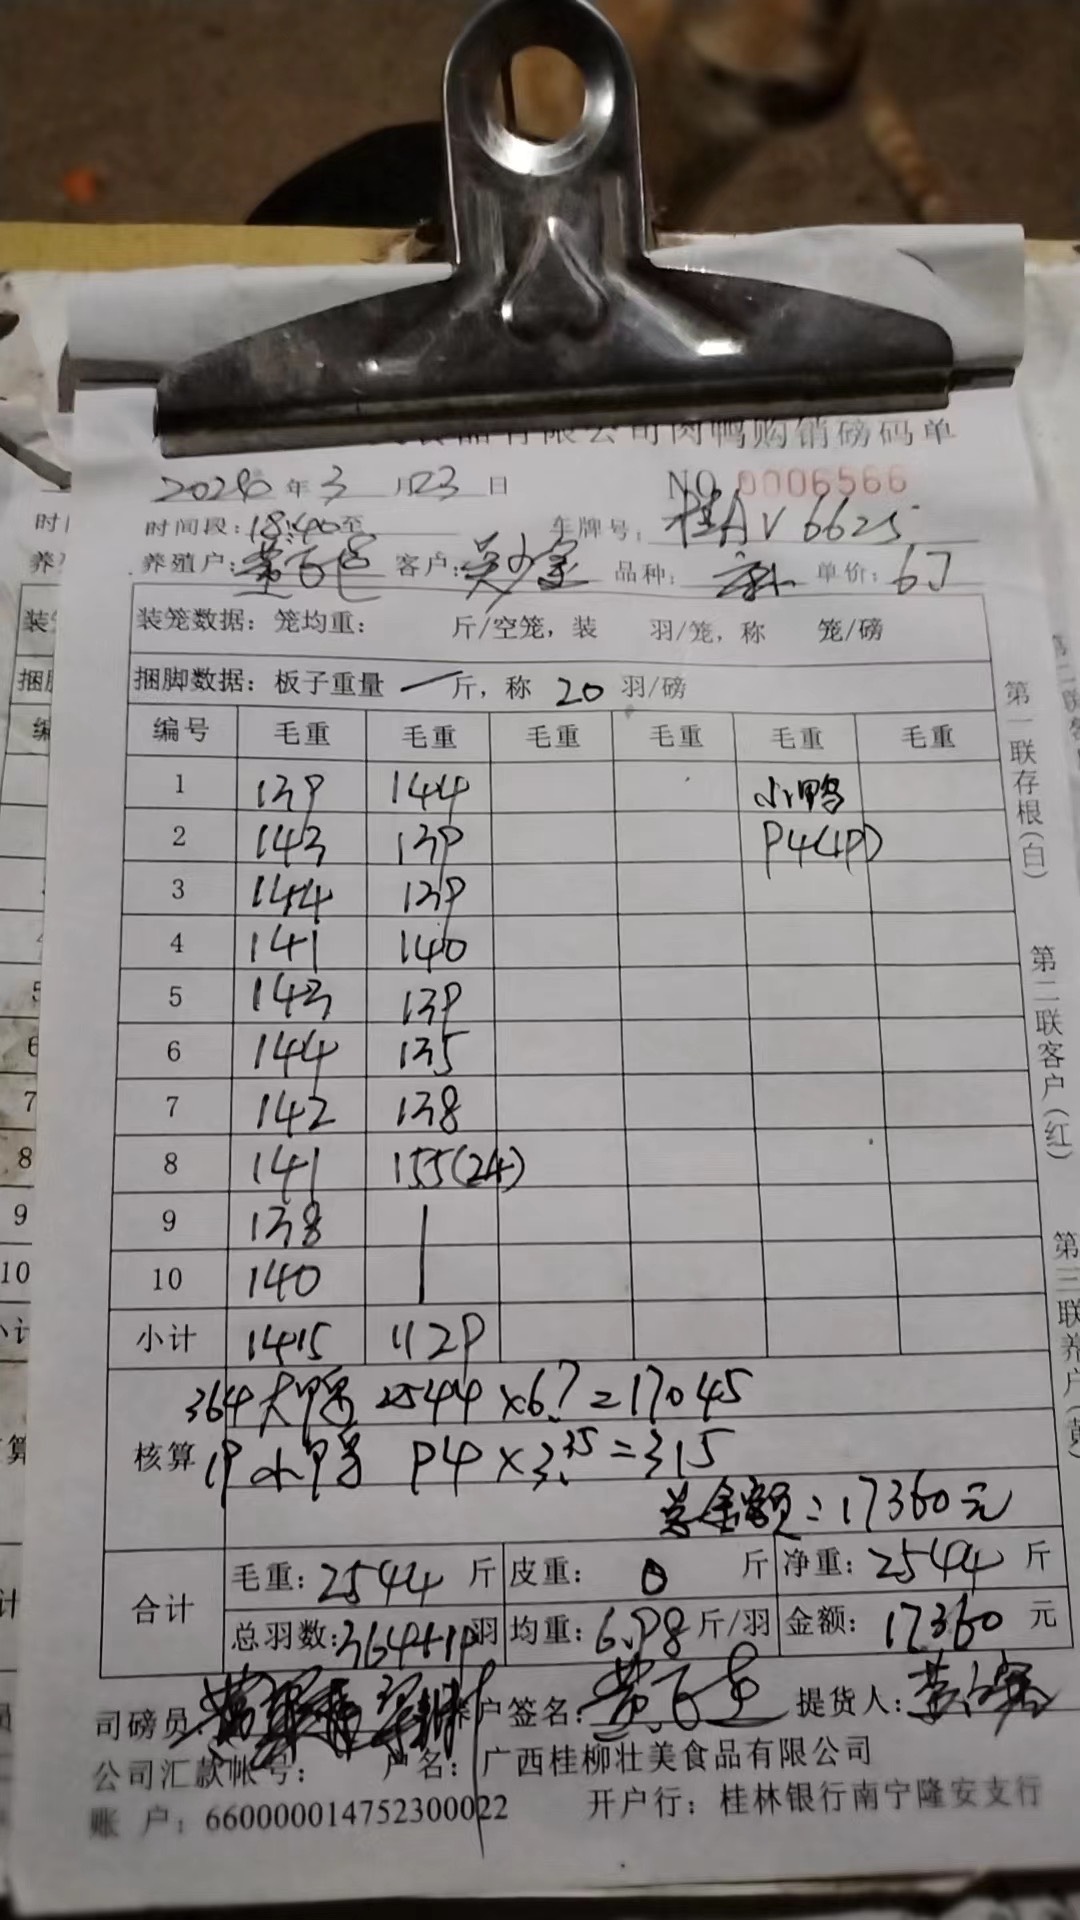 食品有限公司肉鸭购销磅码单
年 3 月 23 日 NO 0006566
时间段: 18:40至 车牌号: 桂AV6625
养殖户: 客户: 吴少 品种: 单价: 6.7
装笼数据: 笼均重: 斤/空笼, 装 羽/笼, 称 笼/磅
捆脚数据: 板子重量 一 斤, 称 20 羽/磅
编号 毛重 毛重 毛重 毛重 毛重 毛重
1 139 144 小鸭
2 143 139 94(19)
3 144 139
4 141 140
5 143 139
6 144 135
7 142 138
8 141 155(24)
9 138
10 140
小计 1415 1129
364大鸭 2544×6.7=17045
核算 19小鸭 94×3.35=315
总金额:17360元
合计 毛重: 2544 斤 皮重: 0 斤 净重: 2544 斤
总羽数: 364+19 羽 均重: 6.98 斤/羽 金额: 17360 元
司磅员: 户签名: 提货人:
公司汇款帐号: 户名: 广西桂柳壮美食品有限公司
账 户: 660000014752300022 开户行: 桂林银行南宁隆安支行
第一联存根(白)
第二联客户(红)
第三联养户(黄)